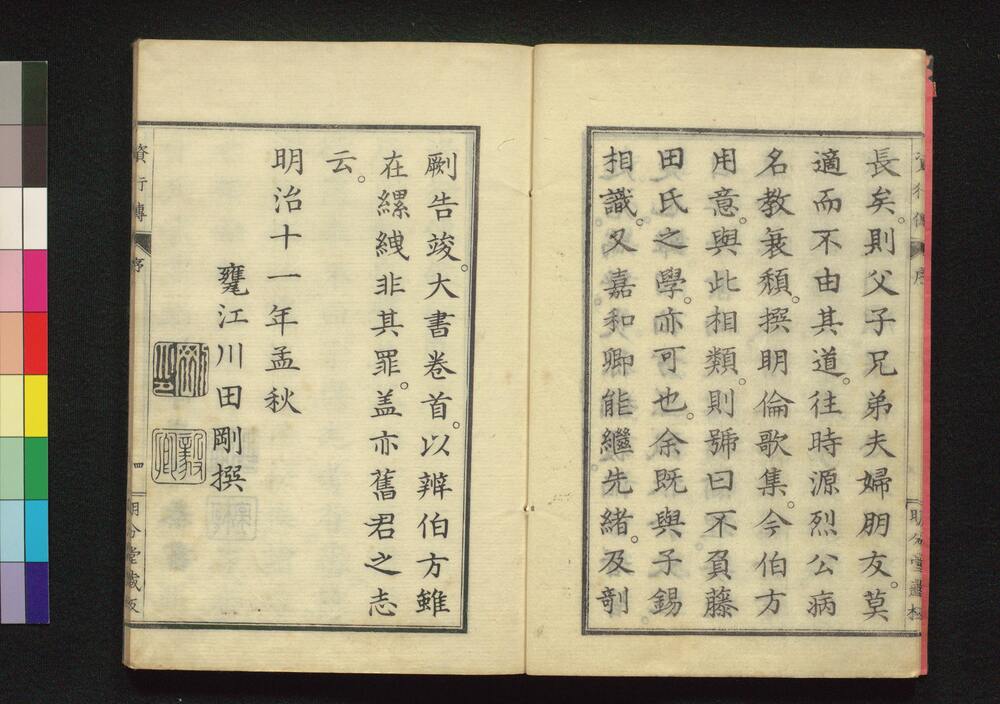 長矣。則父子兄弟夫婦朋友。莫
適而不由其道。往時源烈公病
名教衰頽。撰明倫歌集。今伯方
用意。與此相類。則號曰不負藤
田氏之學。亦可也。余既與子錫
相識。又嘉和卿能繼先緒。及剞
劂告竣。大書卷首。以辨伯方雖
在縲絏非其罪。盖亦舊君之志
云。
明治十一年孟秋
甕江川田剛撰
資行傳
序
四
明分堂藏版